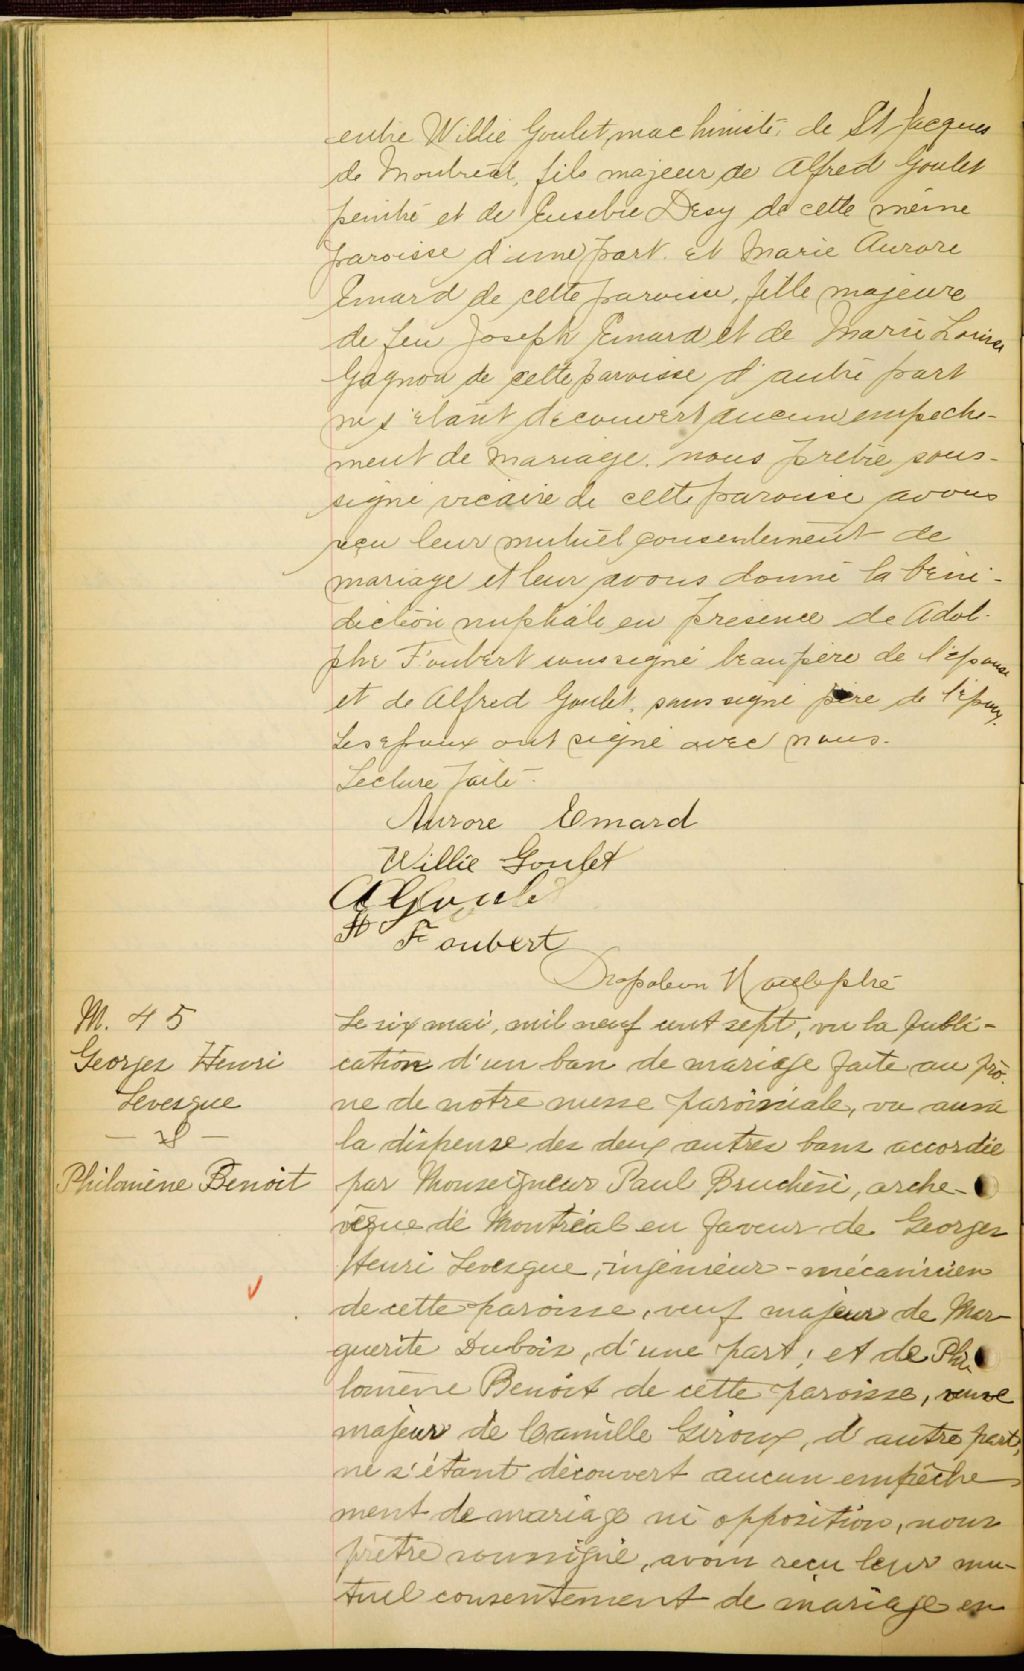 entre Willie Goulet, machiniste, de St Jacques
de Montréal, fils majeur de Alfred Goulet
peintre et de Eusebie Desy de cette même
paroisse d'une part. Et Marie Aurore
Emard de cette paroisse, fille majeure
de feu Joseph Emard et de Marie Louise
Gagnon de cette paroisse d'autre part
ne s'étant découvert aucun empeche-
ment de mariage. nous prêtre sous-
signé vicaire de cette paroisse avons
reçu leur mutuel consentement de
mariage et leur avons donné la béné-
diction nuptiale en présence de Adol-
phe Foubert soussigné beau père de l'épouse
et de Alfred Goulet, soussigné père de l'époux.
Les epoux ont signé avec nous.
Lecture faite.
Aurore Emard
Willie Goulet
A Goulet
A Foubert
Napoleon ptre
M. 45
Georges Henri
Levesque
— & —
Philomène Benoit
Le six mai, mil neuf cent sept, vu la publi-
cation d'un ban de mariage faite au prô-
ne de notre messe paroissiale, vu aussi
la dispense des deux autres bans accordée
par Monseigneur Paul Bruchési, arche-
vêque de Montréal en faveur de Georges
Henri Levesque, ingénieur-mécanicien
de cette paroisse, veuf majeur de Mar-
guerite Dubois, d'une part; et de Phi-
lomène Benoit de cette paroisse, veuve
majeur de Camille Giroux, d'autre part,
ne s'étant découvert aucun empêche-
ment de mariage ni opposition, nous
prêtre soussigné, avons reçu leur mu-
tuel consentement de mariage en